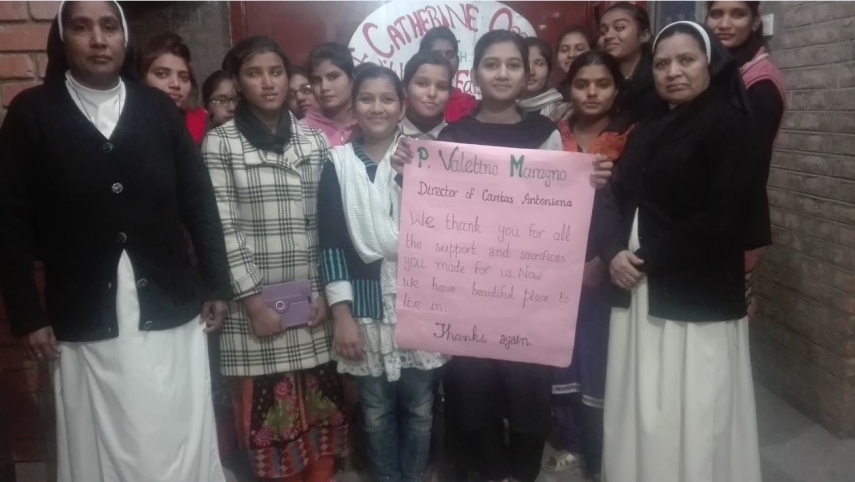 St CATHERINE
P. Valetino Maragno
Director of Caritas Antoniana
We thank you for all
the support and sacrifices
you made for us. Now
we have beautiful place to
live in.
Thanks again.